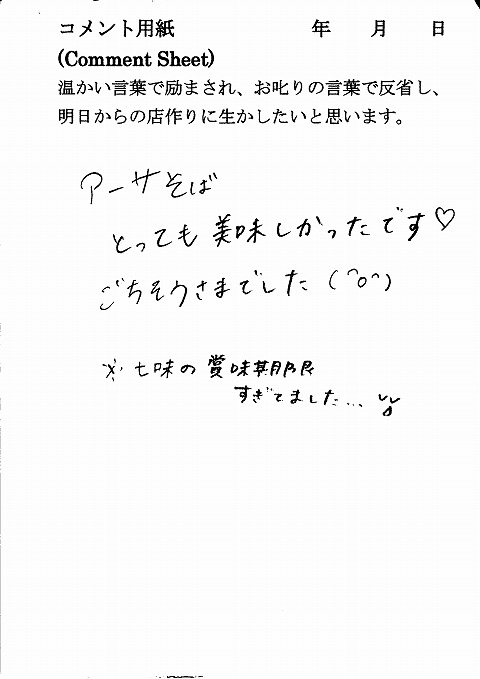 コメント用紙 年 月 日
(Comment Sheet)
温かい言葉で励まされ、お叱りの言葉で反省し、
明日からの店作りに生かしたいと思います。
アーサそば
とっても美味しかったです♡
ごちそうさまでした(^o^)
※七味の賞味期限
すぎてました...